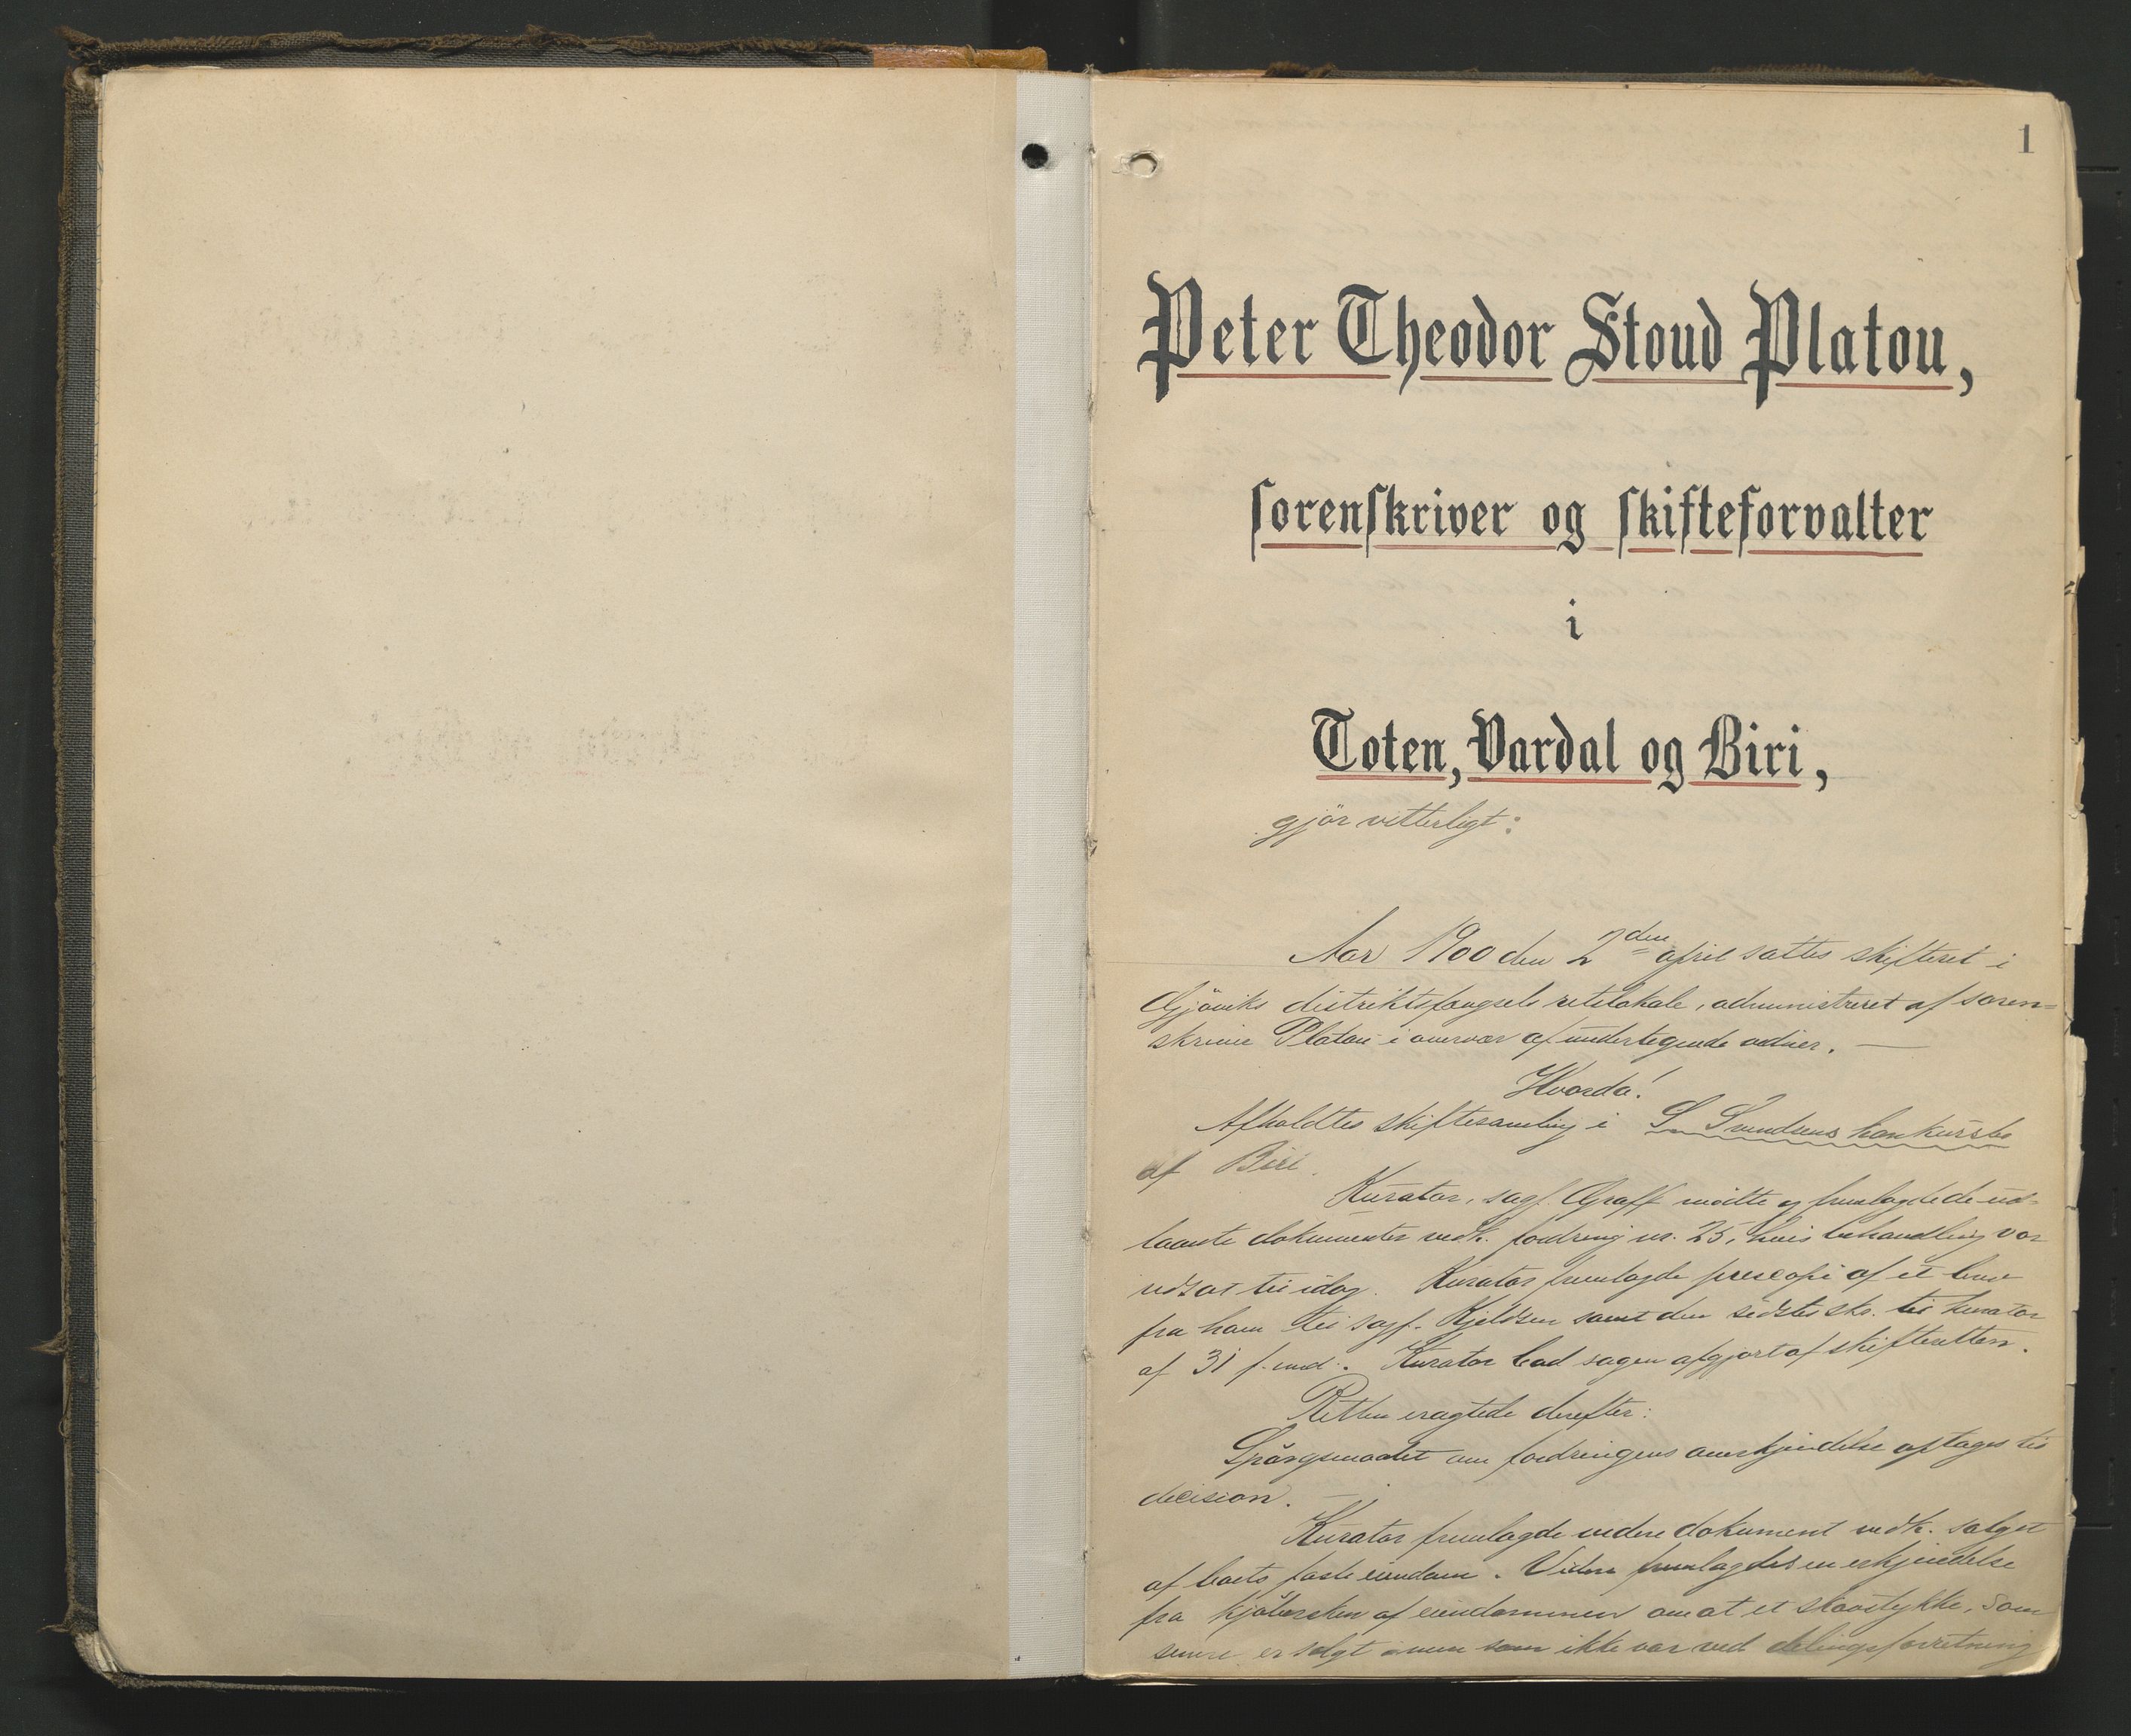 1
Peter Theodor Stoud Platou,
sorenskriver og skifteforvalter
i
Toten, Vardal og Biri,
gjör vitterligt:
Aar 1900 den 2den april sattes skifteret i
Gjöviks distriktsfængsels retslokale, administreret af soren=
skriver Platou i overvær af undertegnede vidner. —
Hvorda!
Afholdtes skiftesamling i S. Svendsens konkursbo
af Biri.
Kurator, sagf. Graff mödte og fremlagde de ud-
laante dokumenter vedk. fordring nr. 25, hvis behandling var
udsat til idag. Kurator fremlagde prescopi af et brev
fra ham til sagf. Kjeldsen samt den sidstes skr. til kurator
af 31 f. md. Kurator bad sagen afgjort af skifteretten.
Retten eragtede derefter:
Spörgsmaalet om fordringens anerkjendelse optages til
decision.
Kurator fremlagde videre dokument vedk. salget
af boets faste eiendom. Videre fremlagdes en erkjendelse
fra kjöbersken af eiendommen om at et skovstykke, som
senere er solgt men som ikke var ved delingsforretning